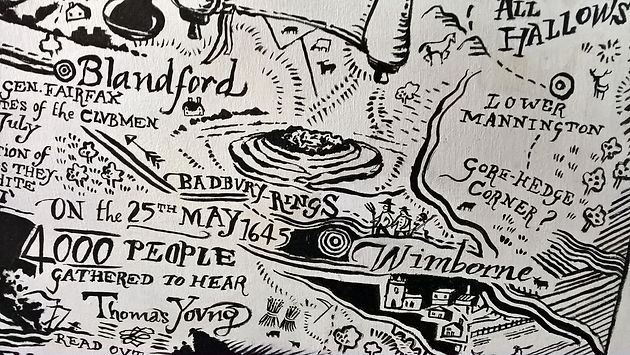 ALL
HALLOWS
Blandford
GEN. FAIRFAX
of the CLUBMEN
July
LOWER
MANNINGTON
TION of
S THEY
HITE
BADBURY RINGS
GORE-HEDGE
CORNER?
ON the 25TH MAY 1645
4000 PEOPLE
Wimborne
GATHERED TO HEAR
Thomas Young
READ OUT